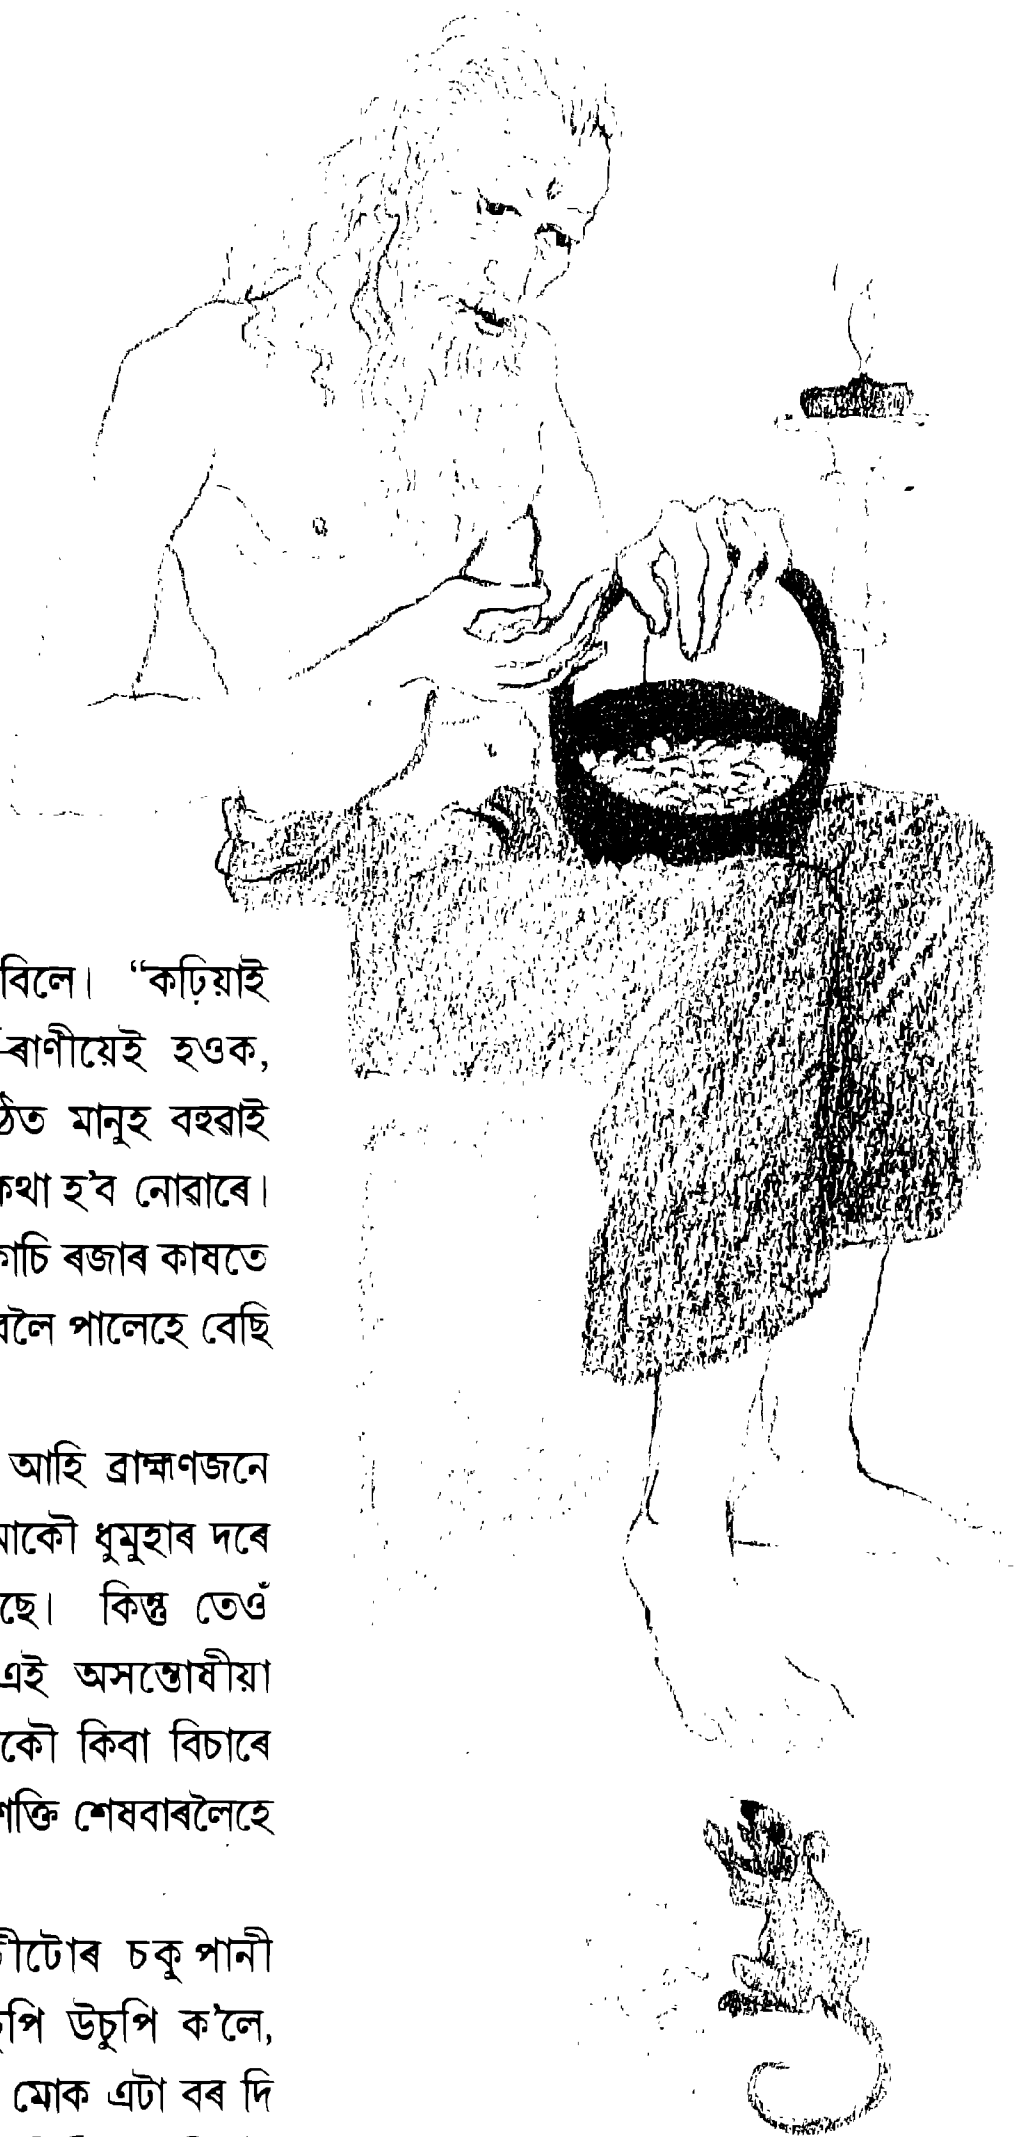 বিলে। “কঢ়িয়াই
–ৰাণীয়েই হওক,
মানুহ বহুৱাই
কথা হ’ব নোৱাৰে।
ৰজাৰ কাষতে
পালেহে বেছি
আহি ব্ৰাহ্মণজনে
ধুমুহাৰ দৰে
ছে। কিন্তু তেওঁ
এই অসন্তোষীয়া
কিবা বিচাৰে
শক্তি শেষবাৰলৈহে
চকু পানী
উচুপি ক’লে,
মোক এটা বৰ দি